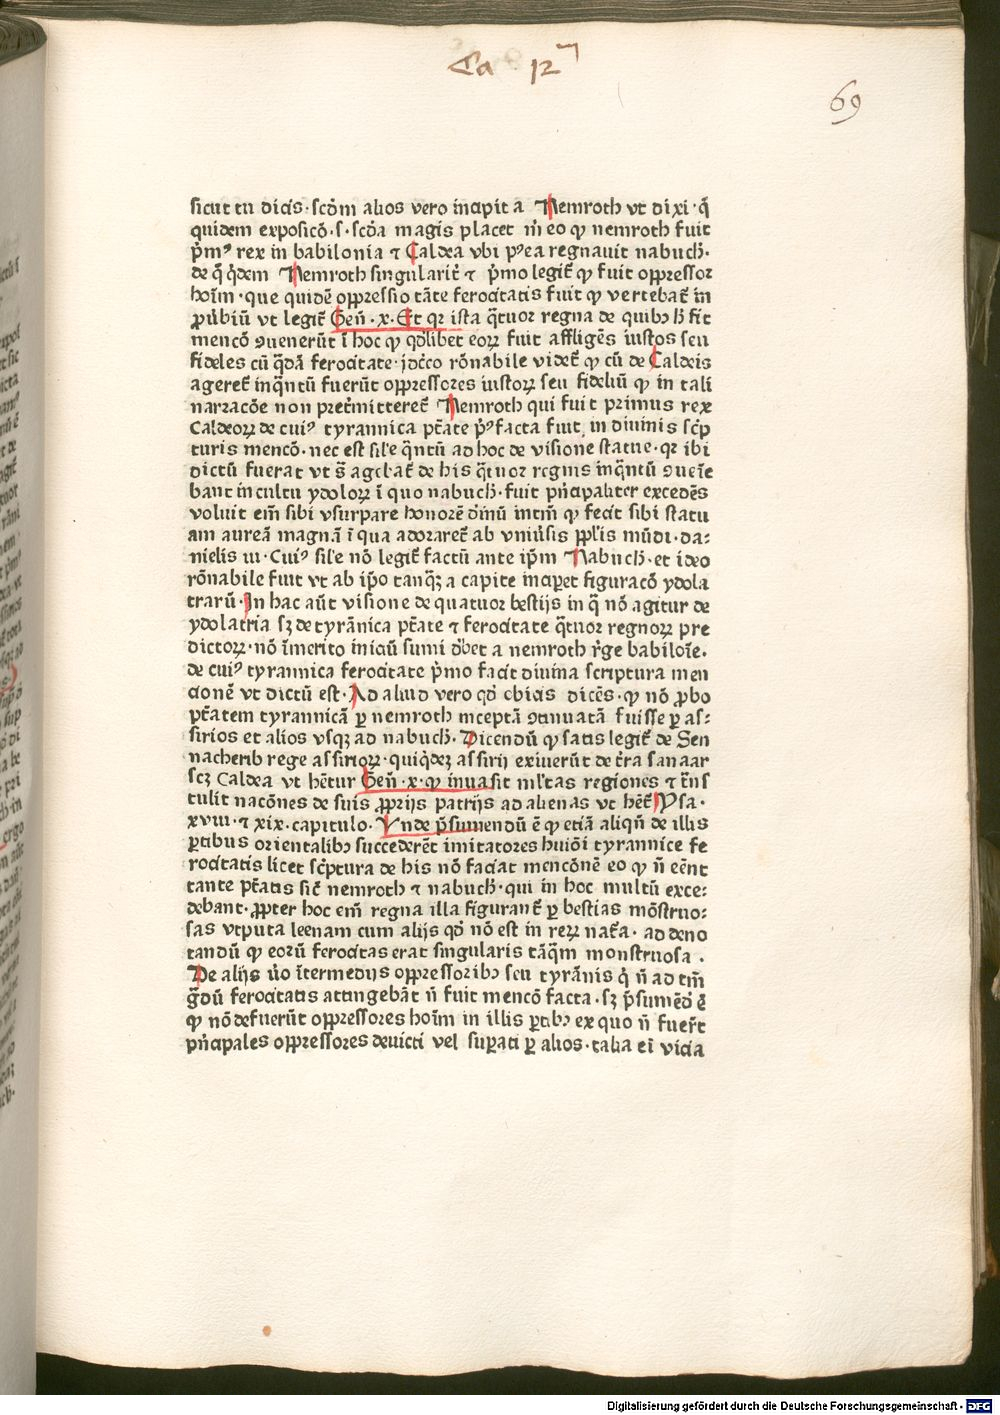 Ca 12
69
sicut tu dicis · scd̄m alios vero incipit a Nemroth vt dixi · q̄
quidem exposicō · s · scd̄a magis placet m̄ eo ꝙ nemroth fuit
p̄mꝰ rex in babilonia ⁊ Caldea vbi pꝰea regnauit nabuch̄.
de q̄ q̄dem Nemroth singularit̄ ⁊ p̄mo legit̄ ꝙ fuit oppressor
hoīm · que quidē oppressio tāte ferocitatis fuit ꝙ vertebat̄ in
ꝓūbiū vt legit̄ Gen̄ · x · Et qꝛ ista q̄tuor regna de quibꝰ h̄ fit
mencō ꝯuenerūt ī hoc ꝙ qd̄libet eoꝝ fuit affligēs iustos seu
fideles cū q̄dā ferocitate · idcō rōnabile videt̄ ꝙ cū de Caldeis
ageret̄ inq̄ntū fuerūt oppressores iustoꝝ seu fideliū ꝙ in tali
narracōe non pret̄mitteret̄ Nemroth qui fuit primus rex
Caldeoꝝ de cuiꝰ tyrannica pt̄ate pꝰ facta fuit in diuinis sc̄p
turis mencō · nec est sil̄e q̄ntū ad hoc de visione statue · qꝛ ibi
dictū fuerat vt s̄ agebat̄ de his q̄tuor regnis inq̄ntū ꝯueīe
bant in cultu ydoloꝝ ī quo nabuch̄ · fuit pn̄cipaliter excedēs
voluit em̄ sibi vsurpare honorē diuinū intm̄ ꝙ fecit sibi statu
am aureā magnā ī qua adoraret̄ ab vniuersis ppl̄is mūdi · da⸗
nielis iii · Cuiꝰ sil̄e nō legit̄ factū ante ip̄m Nabuch̄ · et ideo
rōnabile fuit vt ab ip̄o tanqꝫ a capite inciperet figuracō ydola
trarū · In hac aūt visione de quatuor bestijs in q̄ nō agitur de
ydolatria sꝫ de tyrānica pt̄ate ⁊ ferocitate q̄tuor regnoꝝ pre
dictoꝝ · nō īmerito iniciū sumi dꝫbet a nemroth rege babiloīe.
de cuiꝰ tyrannica ferocitate p̄mo facit diuina scriptura men
cionē vt dictū est · Ad aliud vero qd̄ obicis dicēs · ꝙ nō ꝓbo
pt̄atem tyrannicā ꝑ nemroth inceptā ꝯtinuatā fuisse ꝑ as⸗
sirios et alios vsqꝫ ad nabuch̄. Dicendū ꝙ satis legit̄ de Sen
nacherib rege assirioꝝ · qui q̄dez assirij exiuerūt de t̄ra sanaar
scꝫ Caldea vt hētur Gen̄ · x · ꝙ inuasit ml̄tas regiones ⁊ t̄ns
tulit nacōnes de suis ꝓprijs patrijs ad alienas vt hēt̄ Ysa ·
xviii · ⁊ xix · capitulo · Vnde p̄sumendū ē ꝙ etiā aliqn̄ de illis
ꝑtibus orientalibꝰ succederēt imitatores huiōi tyrannice fe
rocitatis licet sc̄ptura de his nō faciat mencōnē eo ꝙ n̄ eēnt
tante pt̄atis sic̄ nemroth ⁊ nabuch̄ · qui in hoc multū exce⸗
debant · ꝓpter hoc em̄ regna illa figurant̄ ꝑ bestias mōstruo⸗
sas vtputa leenam cum alijs qd̄ nō est in reꝝ nat̄a · ad deno
tandū ꝙ eorū ferocitas erat singularis tāq̄m monstruosa .
De alijs v̄o īntermedijs oppressoribꝰ seu tyrānis q̄ n̄ ad tm̄
ḡdū ferocitatis attingebāt n̄ fuit mencō facta · sꝫ p̄sumēdū ē
ꝙ nō defuerūt oppressores hoīm in illis ꝑtibꝰ ex quo n̄ fuer̄t
pn̄cipales oppressores deuicti vel suꝑati ꝑ alios · talia ei̅ vicia
Digitalisierung gefördert durch die Deutsche Forschungsgemeinschaft - DFG